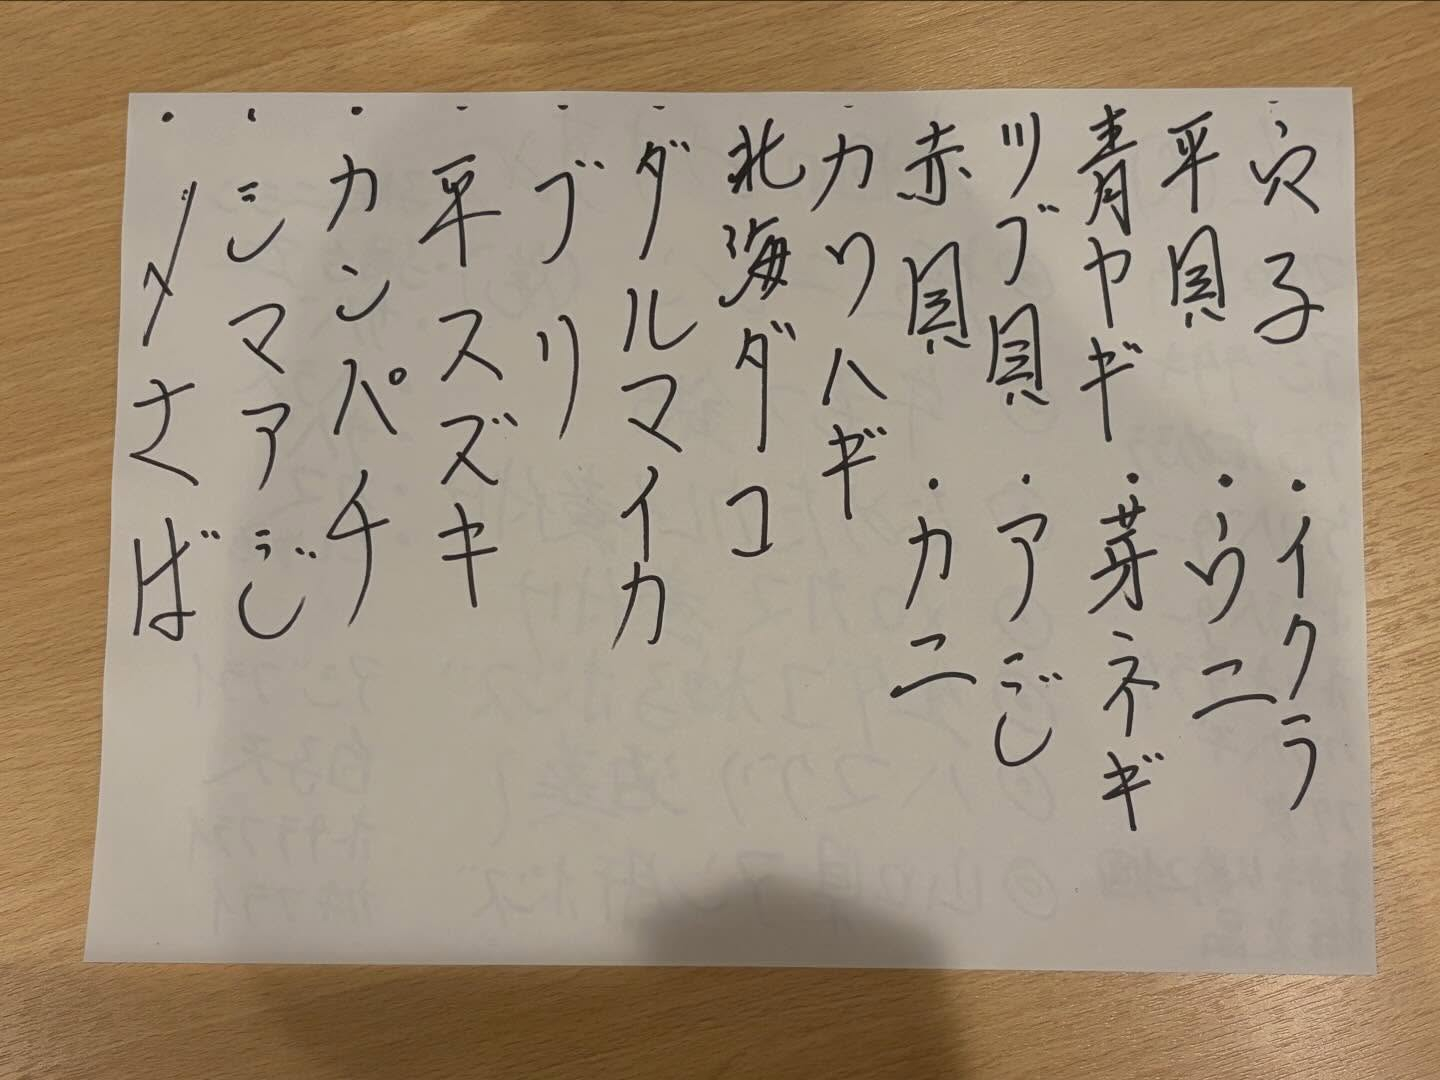 ・穴子
平貝
青ヤギ
ツブ貝
赤貝
・カワハギ
北海ダコ
・ダルマイカ
・ブリ
・平スズキ
・カンパチ
・シマアじ
・〆さば
・イクラ
・ウニ
・芽ネギ
・アじ
・カニ